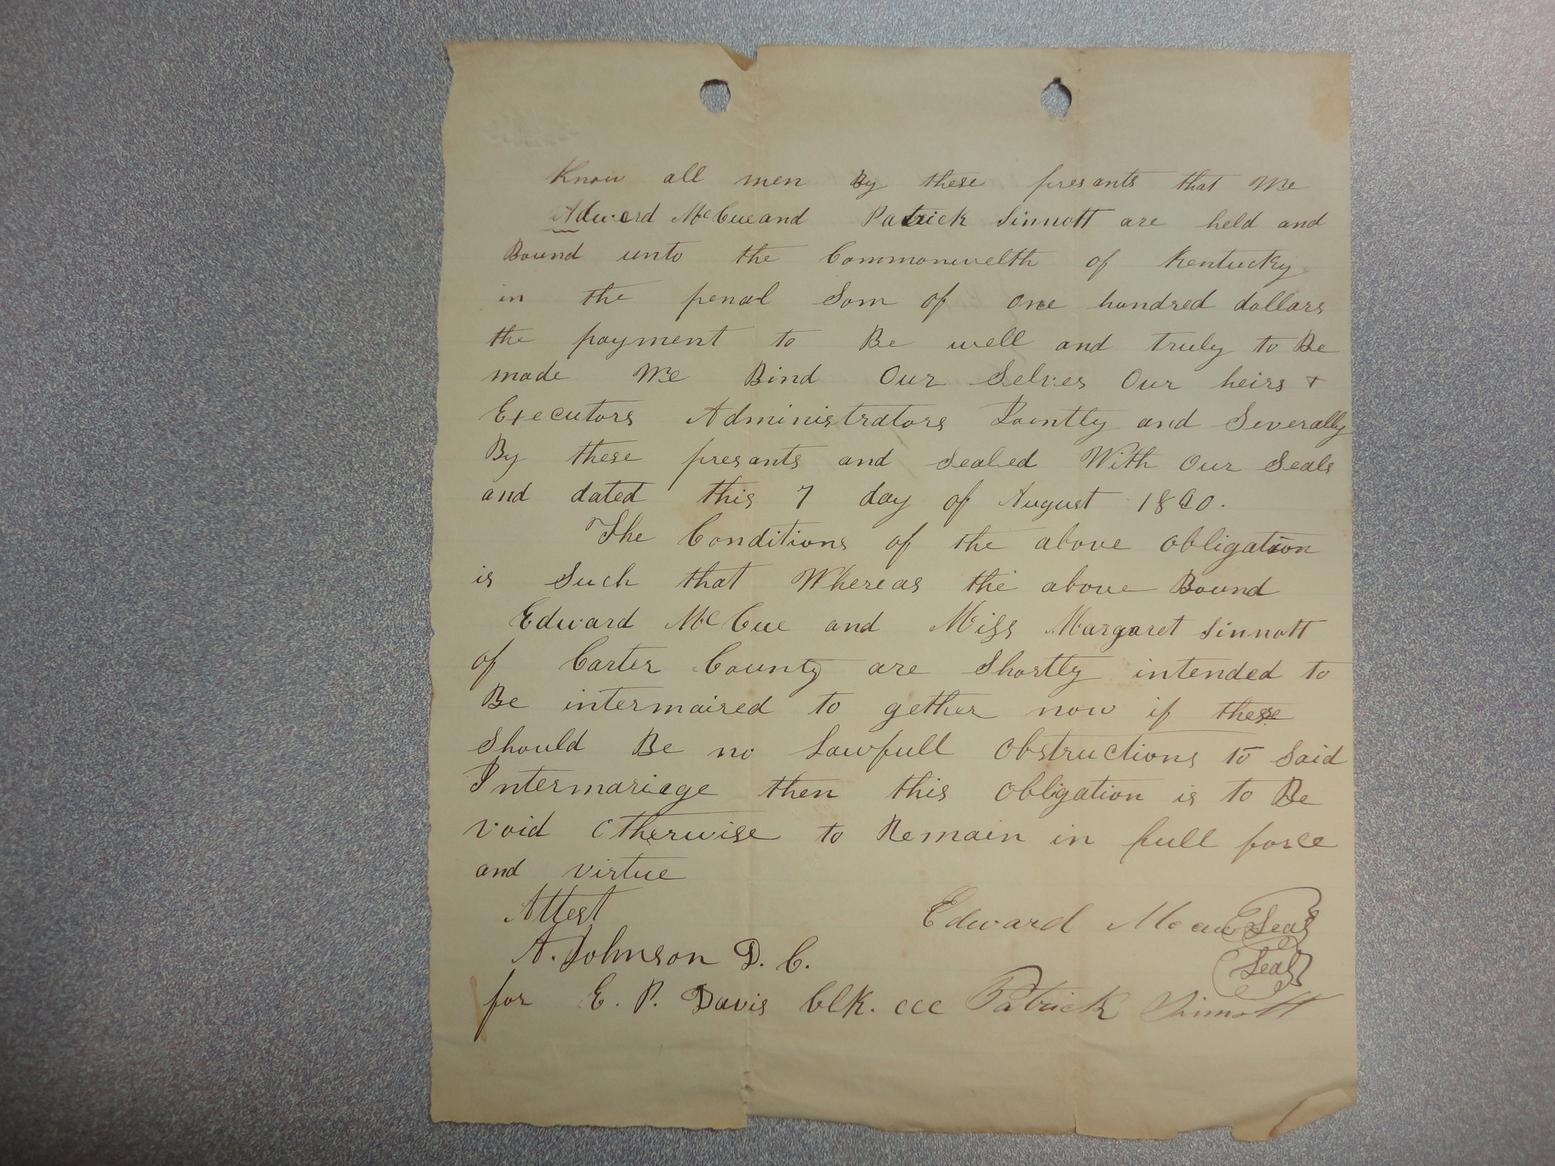 Know all men By these presants that We
Edward McCue and Patrick Sinnott are held and
Bound unto the Commonwelth of Kentucky
in the penal Som of One hundred dollars
the payment to Be well and truly to Be
made We Bind Our Selves Our heirs +
Executors Administrators Jointly and Severally
By these presants and sealed With Our Seals
and dated this 7 day of August
The Conditions of the above Obligation
is Such that Whereas the above Bound
Edward McCue and Miss Margaret Sinnott
of Carter County are Shortly intended to
Be intermaired to gether now if there
Should Be no Lawfull Obstructions to Said
Intermariage then this Obligation is to Be
void Otherwise to Remain in full force
and virtue
Attest
Edward Mccue Seal
A. Johnson D. C.
Seal
for E. P. Davis Clk. ccc Patrick Sinnott